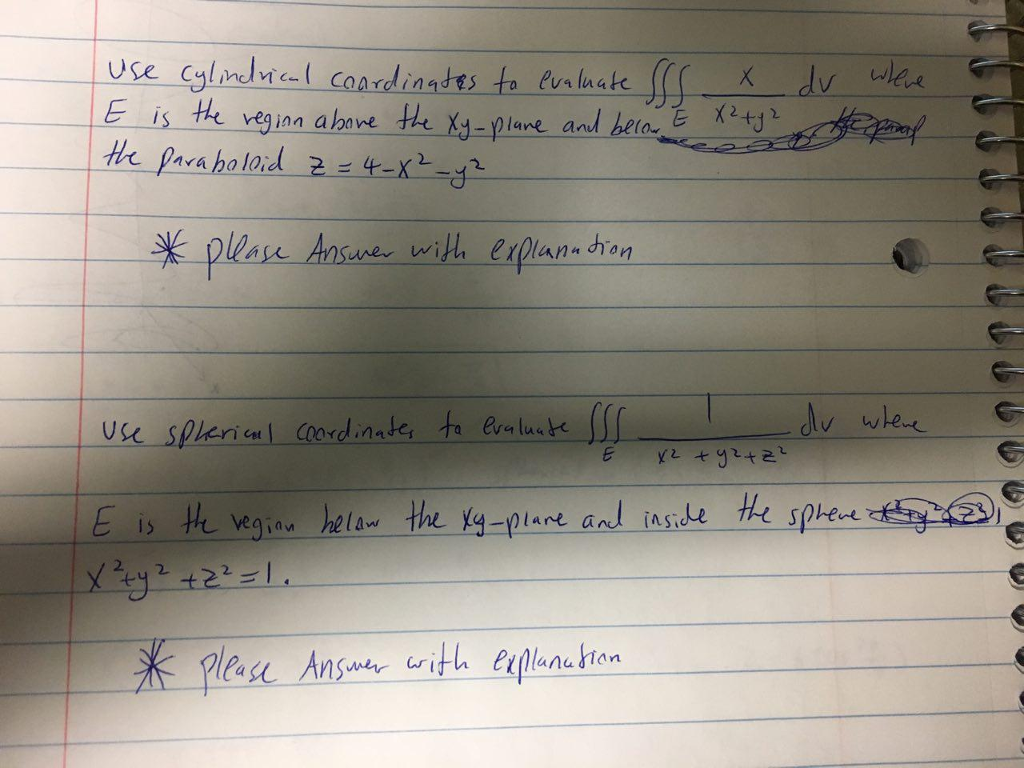 Use cylindrical coordinates to evaluate ∭_E x/(x²+y²) dv where
E is the region above the xy-plane and below
the paraboloid z = 4-x²-y²
* please Answer with explanation
Use spherical coordinates to evaluate ∭_E 1/(x²+y²+z²) dv where
E is the region below the xy-plane and inside the sphere
x²+y²+z²=1.
* please Answer with explanation